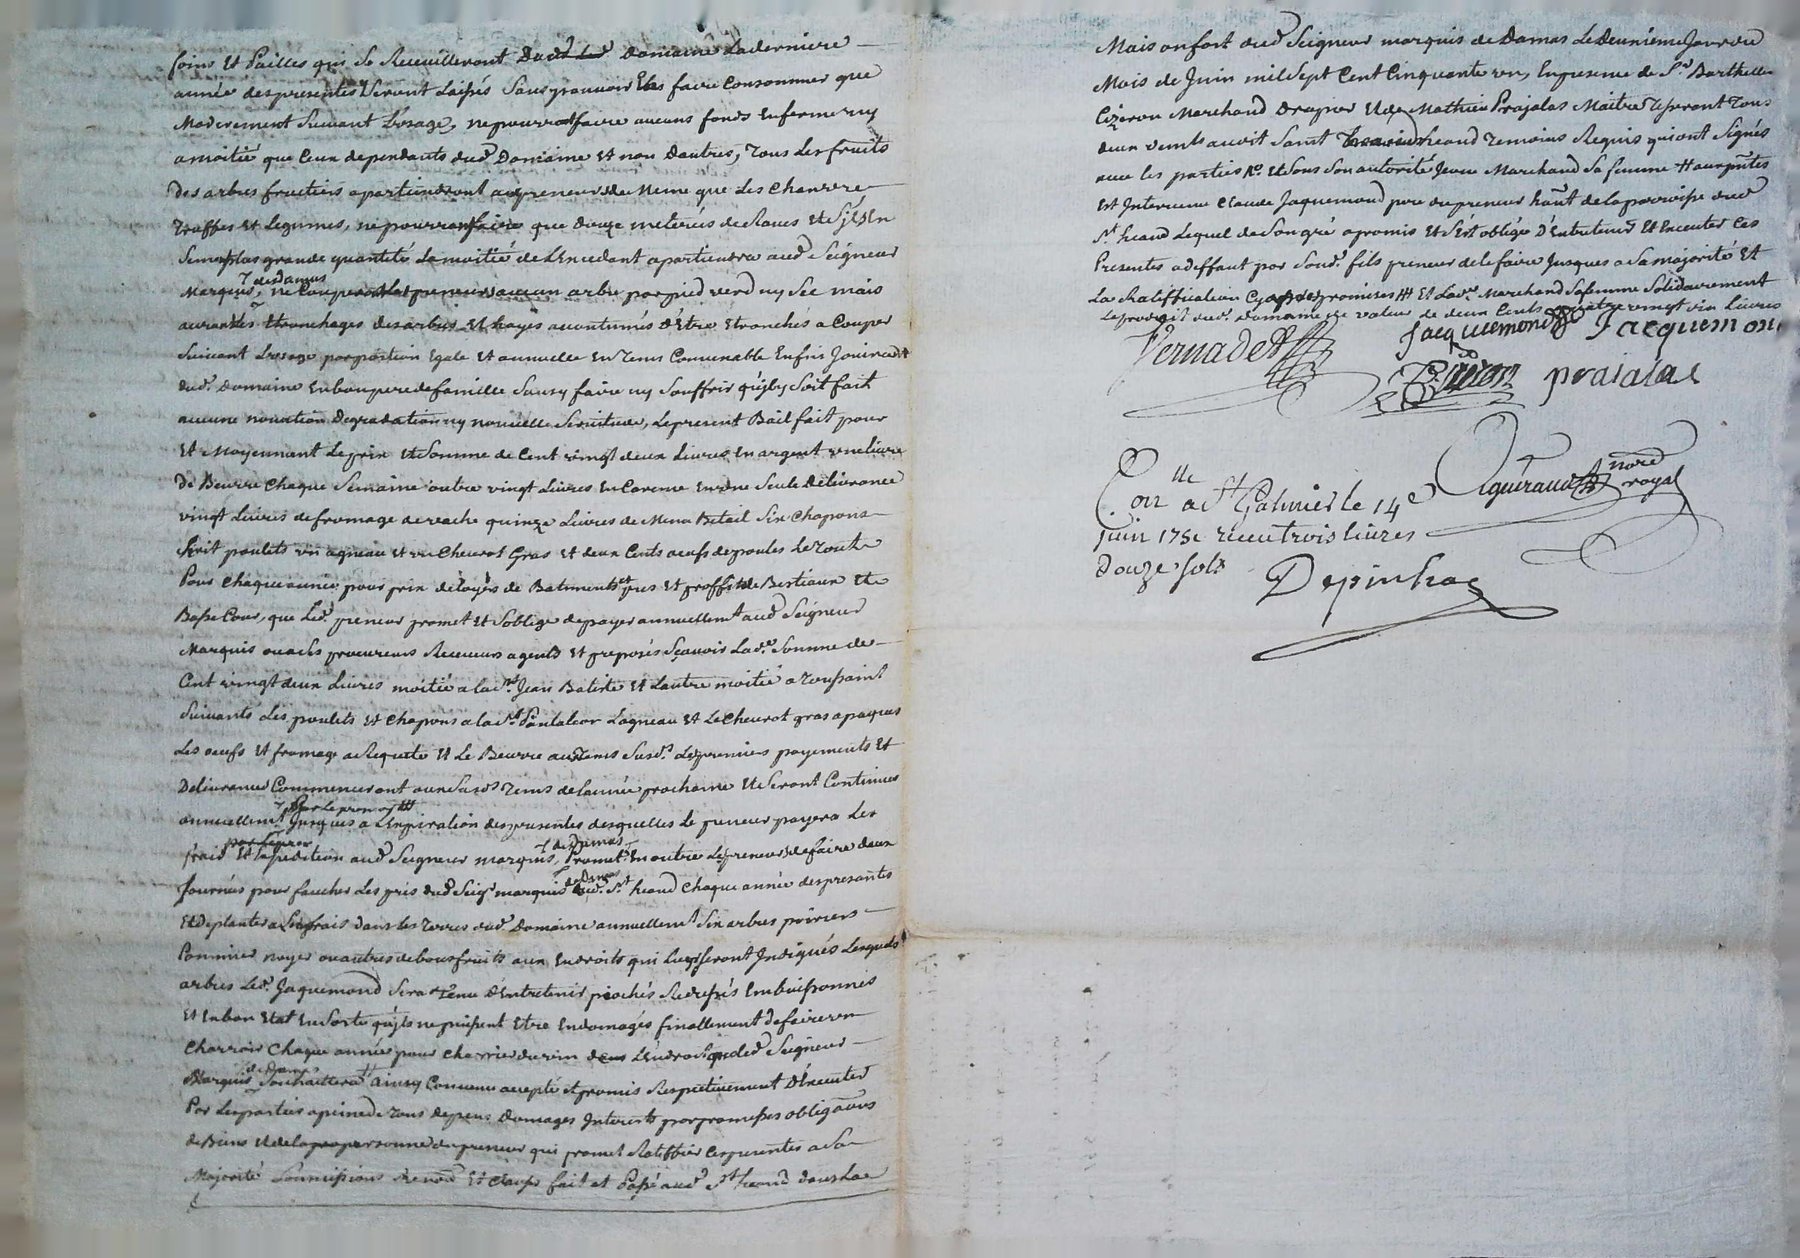 foins Et Pailles qui Se Recueilleront Dud Domaine La derniere
année des presentes Seront Laissés Sans pouvoir Les faire Consommer que
Moderement Suivant L'usage, ne pourra faire aucuns fonds En ferme ny
a moitié que Ceux dependants dud Domaine Et non D'autres, Tous Les fruits
Des arbres fruitiers apartiendront au preneur de Meme que Les Chanvre
Truffes Et Legumes, ne pourra faire que Douze meterées de Raves Et S'il En
Seme plus grande quantité La moitié de L'Excedant apartiendra aud Seigneur
Marquis, de Damas ne Coupera Led preneur aucun arbre par pied verd ny Sec mais
aura Les Etronchages des arbres Et hayes acoutumés D'Etre Etronchés a Couper
Suivant L'usage par portion Egale Et annuelle En Tems Convenable Enfin Jouira
dud. Domaine En bon pere de famille Sans y faire ny Souffrir qu'il y Soit fait
aucune novation Degradation ny nouvelle Servitude, Le present Bail fait pour
Et Moyennant Le prix Et Somme de Cent vingt deux Livres En argent une Livre
De Beurre Chaque Semaine outre vingt Livres En Careme En une Seule Delivrance
vingt Livres de fromage de vache quinze Livres de Menu Betail Six Chapons
huit poulets un agneau Et un Chevrot Gras Et deux Cents oeufs de poules Le Tout
Pour Chaque année pour prix de Loyers de Batiments Et proffit de Bestiaux Et
Basse Cour, que Led. preneur promet Et S'oblige de payer annuellement aud Seigneur
Marquis ou a Ses procureurs Receveurs agents Et preposés Sçavoir Lad. Somme de
Cent vingt deux Livres moitié a La St Jean Batiste Et L'autre moitié a Toussaint
Suivants Les poulets Et Chapons a La St Pantaleon L'agneau Et Le Chevrot gras a paques
Les oeufs Et fromage a Requete Et Le Beurre aux Tems Susds Les premiers payements Et
Delivrances Commenceront aux Susds Tems de L'année prochaine Et Seront Continues
annuellemt Jusques a L'Expiration des presentes desquelles Le preneur payera Les
frais Et Expedition aud Seigneur marquis, de Damas Promet En outre Le preneur de faire deux
Journées pour faucher Les prés dud Seigr marquis de Damas aud. St heand Chaque année des presentes
Et de planter a Ses frais Dans Les Terres dud Domaine annuellemt Six arbres poiriers
Pommier noyer ou autres de bons fruits aux Endroits qui Luy Seront Indiqués Lesquels
arbres Led. Jaquemond Sera Tenu D'Entretenir piochés Redressés Embuissonnés
Et En bon Etat En Sorte qu'ils ne puissent Etre Endomagés finallement de faire un
Charroir Chaque année pour Charrier du vin dans L'Endroit que led Seigneur
Marquis de Damas Souhaittera ainsy Convenu accepté Et promis Respectivement D'Executer
Par Les parties a peine de Tous depens Domages Interests par promesses obligaons
de Biens Et de La propre personne du preneur qui promet Ratiffier Ces presentes a Sa
Majorité Soumissions Renonc Et Clauses fait et Passé aud St heand dans La
Maison fort dud Seigneur marquis de Damas Le Deuxieme Jour du
Mois de Juin mil Sept Cent Cinquante un, En presence de Sr Barthelle
Cizeron Marchand Drapier Et de Mathieu Prajalas Maitre Tisserant Tous
deux aud Saint heand Temoins Requis qui ont Signés
avec les parties Et Sous Son autorité Jeane Marchand Sa femme aux pntes
Est Intervenu Claude Jaquemond pere du preneur hant de la parroisse dud
St heand Lequel de Son gré a promis Et S'Est obligé D'Entretenir Et Executer Ces
Presentes a deffaut par Sond. fils preneur de le faire Jusques a Sa majorité Et
La Ratiffication Cy promises Et Lade Marchand Sa femme Solidairement
Le produit dud. Domaine de valeur de deux Cents quatre vingt six Livres
Vernade Jacquemond Jacquemon
Cizeron prajalas
Conlle a St Galmier le 14e
juin 1751 receu trois livres
douze sols
Depinhac
Agueraud nore
royal